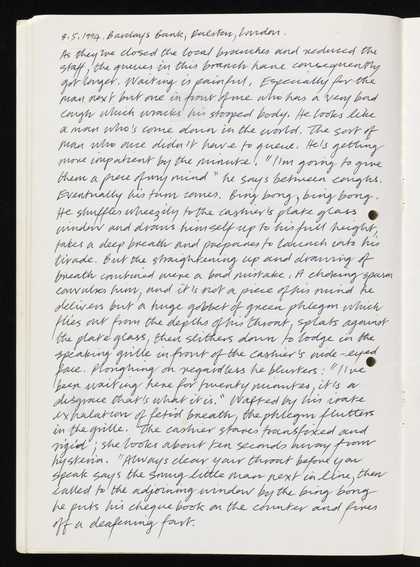 9.5.1994. Barclays Bank, Dalston, London.
As they've closed the local branches and reduced the
staff, the queues in this branch have consequently
got longer. Waiting is painful. Especially for the
man next but one in front of me who has a very bad
cough which wracks his stooped body. He looks like
a man who's come down in the world. The sort of
man who once didn't have to queue. He's getting
more impatient by the minute. "I'm going to give
them a piece of my mind" he says between coughs.
Eventually his turn comes. Bing bong, bing bong.
He shuffles wheezily to the cashier's plate glass
window and draws himself up to his full height,
takes a deep breath and prepares to launch into his
tirade. But the straightening up and drawing of
breath combined were a bad mistake. A choking spasm
convulses him, and it is not a piece of his mind he
delivers but a huge gobbet of green phlegm which
flies out from the depths of his throat, splats against
the plate glass, then slithers down to lodge in the
speaking grille in front of the cashier's wide-eyed
face. Ploughing on regardless he blusters: "I've
been waiting here for twenty minutes, it's a
disgrace that's what it is." Wafted by his irate
exhalation of fetid breath, the phlegm flutters
in the grille. The cashier stares transfixed and
rigid; she looks about ten seconds away from
hysteria. "Always clear your throat before you
speak says the smug little man next in line, then
called to the adjoining window by the bing bong
he puts his cheque book on the counter and fires
off a deafening fart.